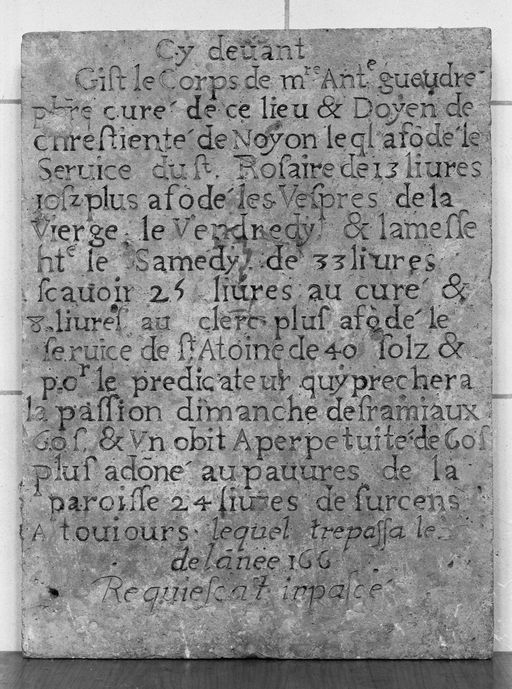 Cy deuant
Gist le Corps de mre Ante gueudre
pbre cure de ce lieu & Doyen de
chrestienté de Noyon leql a fōdé le
Seruice du st. Rosaire de 13 liures
10 sz plus a fōdé les Vespres de la
Vierge le Vendredy & la messe
hte le Samedy de 33 liures
scauoir 25 liures au curé &
8 liures au clerc plus a fōdé le
seruice de st Atoine de 40 solz &
por le predicateur quy prechera
la passion dimanche des ramiaux
60 s. & Vn obit A perpetuité de 60 s
plus adōné au pauures de la
paroisse 24 liures de surcens
A touiours lequel trepassa le
de lānee 166
Requiescat in pasce